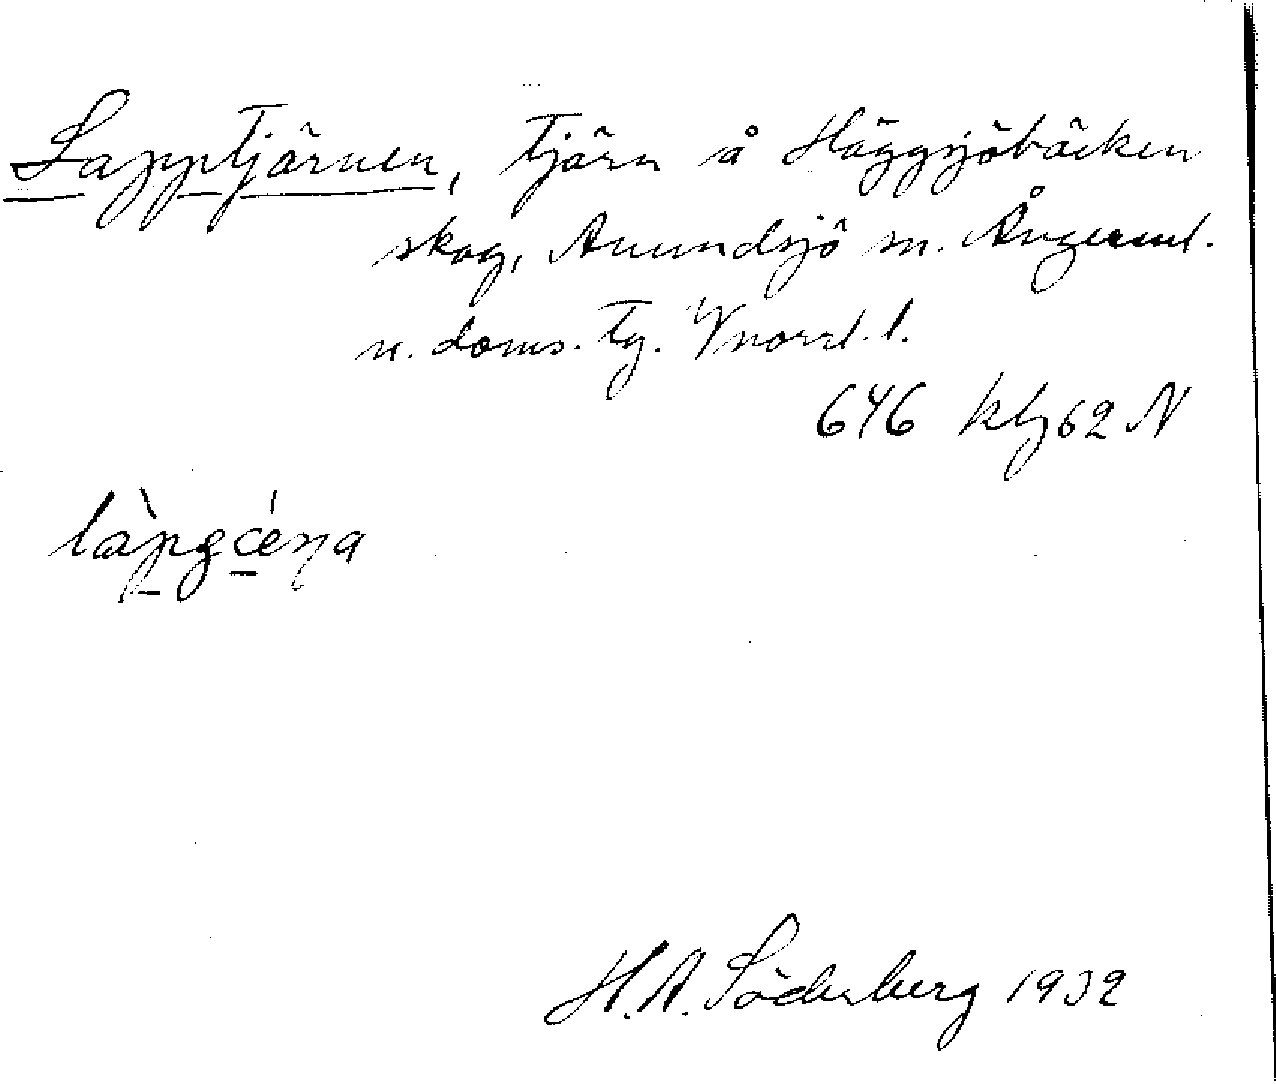 Lapptjärnen, Tjärn å Häggsjöbäcken
skog, Anundsjö sn. Ångerml.
n. doms. Tg. Vnorrl. l.
646 klj 62 N
H. A. Söderberg 1932